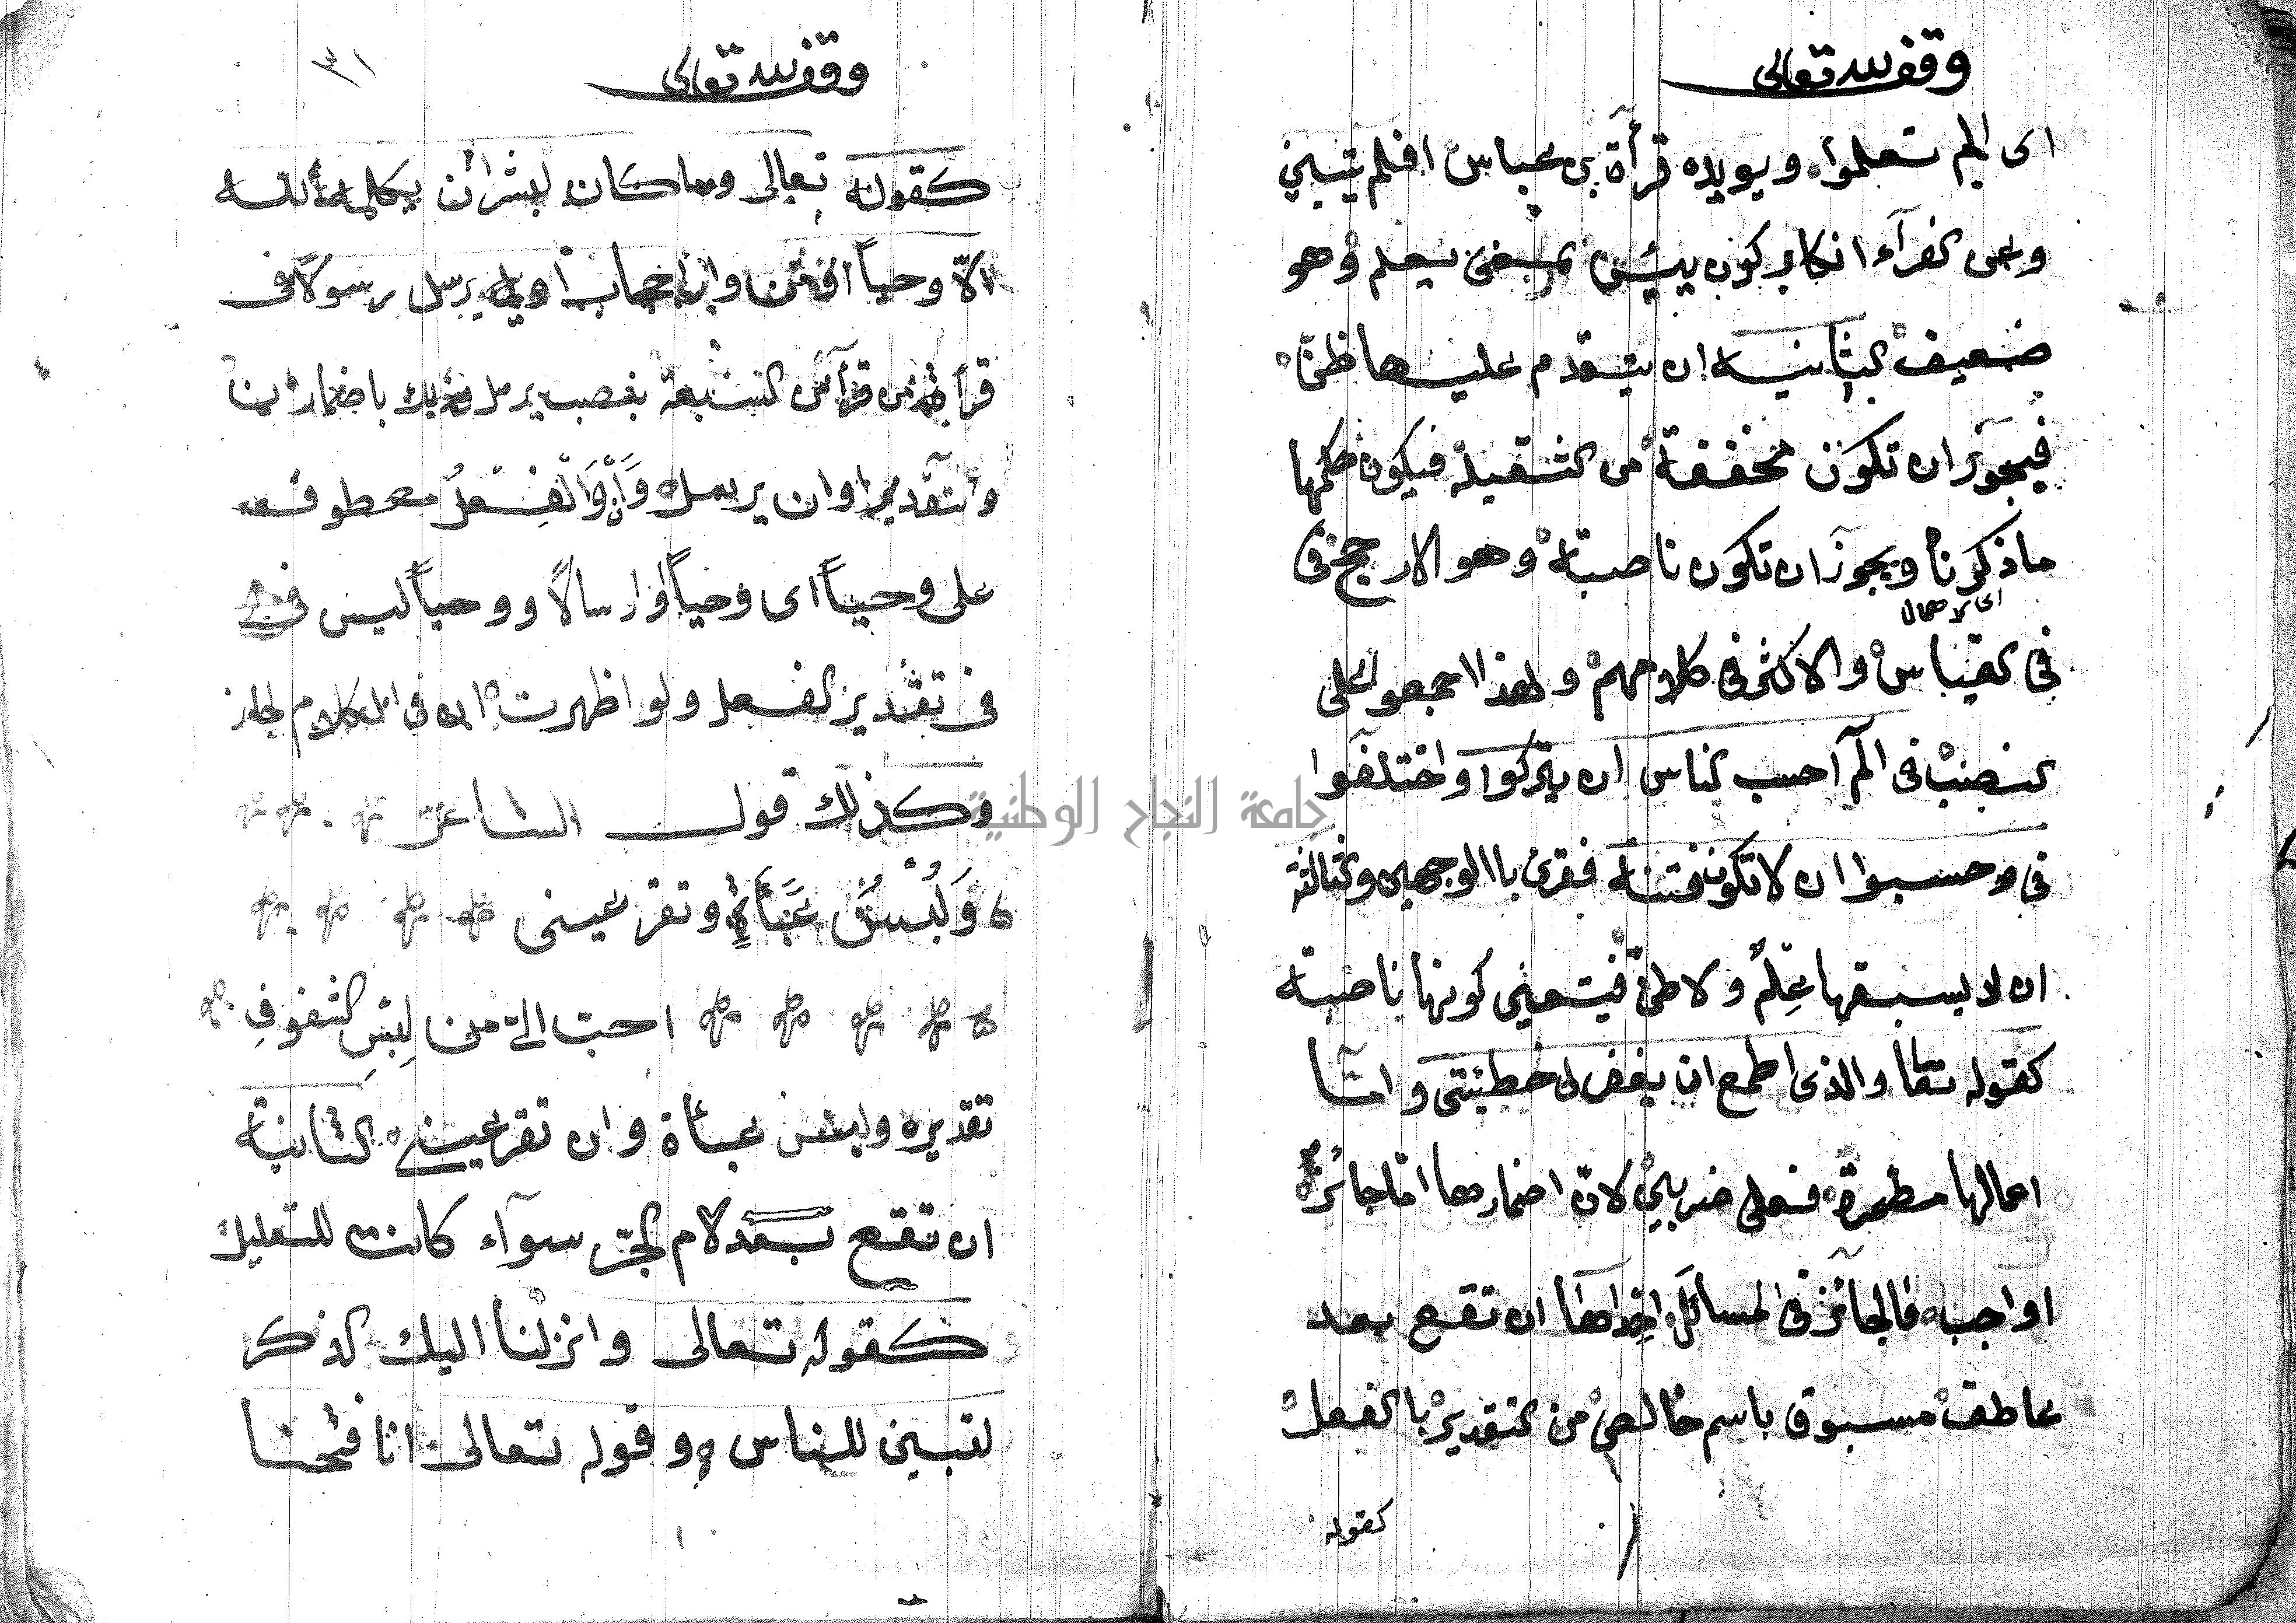 وقف لله تعالى
اى الم تعلموا ويويده قرأة بن عباس افلم يتبين
وعن الفرآء انكار كون ييئس بمعنى يعلم وهو
ضعيف الثانيه ان يتقدم عليها ظنّ
فيجوز ان تكون مخففة من الثقيله فيكون حكمها
ماذكرنا ويجوز ان تكون ناصبة وهو الارجح فى
اى الاهمال
فى القياس والاكثر فى كلامهم ولهذا اجمعوا على
النصب فى الم آحسب الناس ان يتركوا واختلفوا
فى وحسبوا ان لاتكون فتنة فقرئ باالوجهين والثالثة
ان لا يسبقها عِلمٌ ولا ظنّ فيتعين كونها ناصبة
كقوله تعا والذى اطمع ان يغفر لى خطيئتى وامّا
اعمالها مضمرة فعلى ضربين لانّ اضمارها امّا جائز
او واجب فالجائز فى المسائل احداها ان تقع بعد
عاطف مسبوق باسم خالص من التقدير باالفعل
كقوله
وقف لله تعالى
٣١
كقوله تعالى وماكان لبشر ان يكلمه الله
الاّ وحياً او من وراء حجاب او يرسل رسولاً فى
قرأة من قرأ من السبعة بنصب يرسل وذلك باضمار ان
والتقدير او ان يرسل وَأَنْ وَالْفِعلُ معطوف
على وحياً اى وحياً او ارسالاً ووحياً ليس
فى تقدير الفعل ولو اظهرت ان فى الكلام لجاز
وكذلك قول الشاعر
وَلُبْسُ عَبَأةٍ وتقر عينى
احب الىّ من لِبْسِ الشفوفِ
تقديره ولبس عبأة وان تقر عينى الثانية
ان تقع بعد لام الجرّ سوآء كانت للتعليل
كقوله تعالى وانزلنا اليك الذكر
لتبين للناس وقوله تعالى انا فتحنا
جامعة النجاح الوطنية